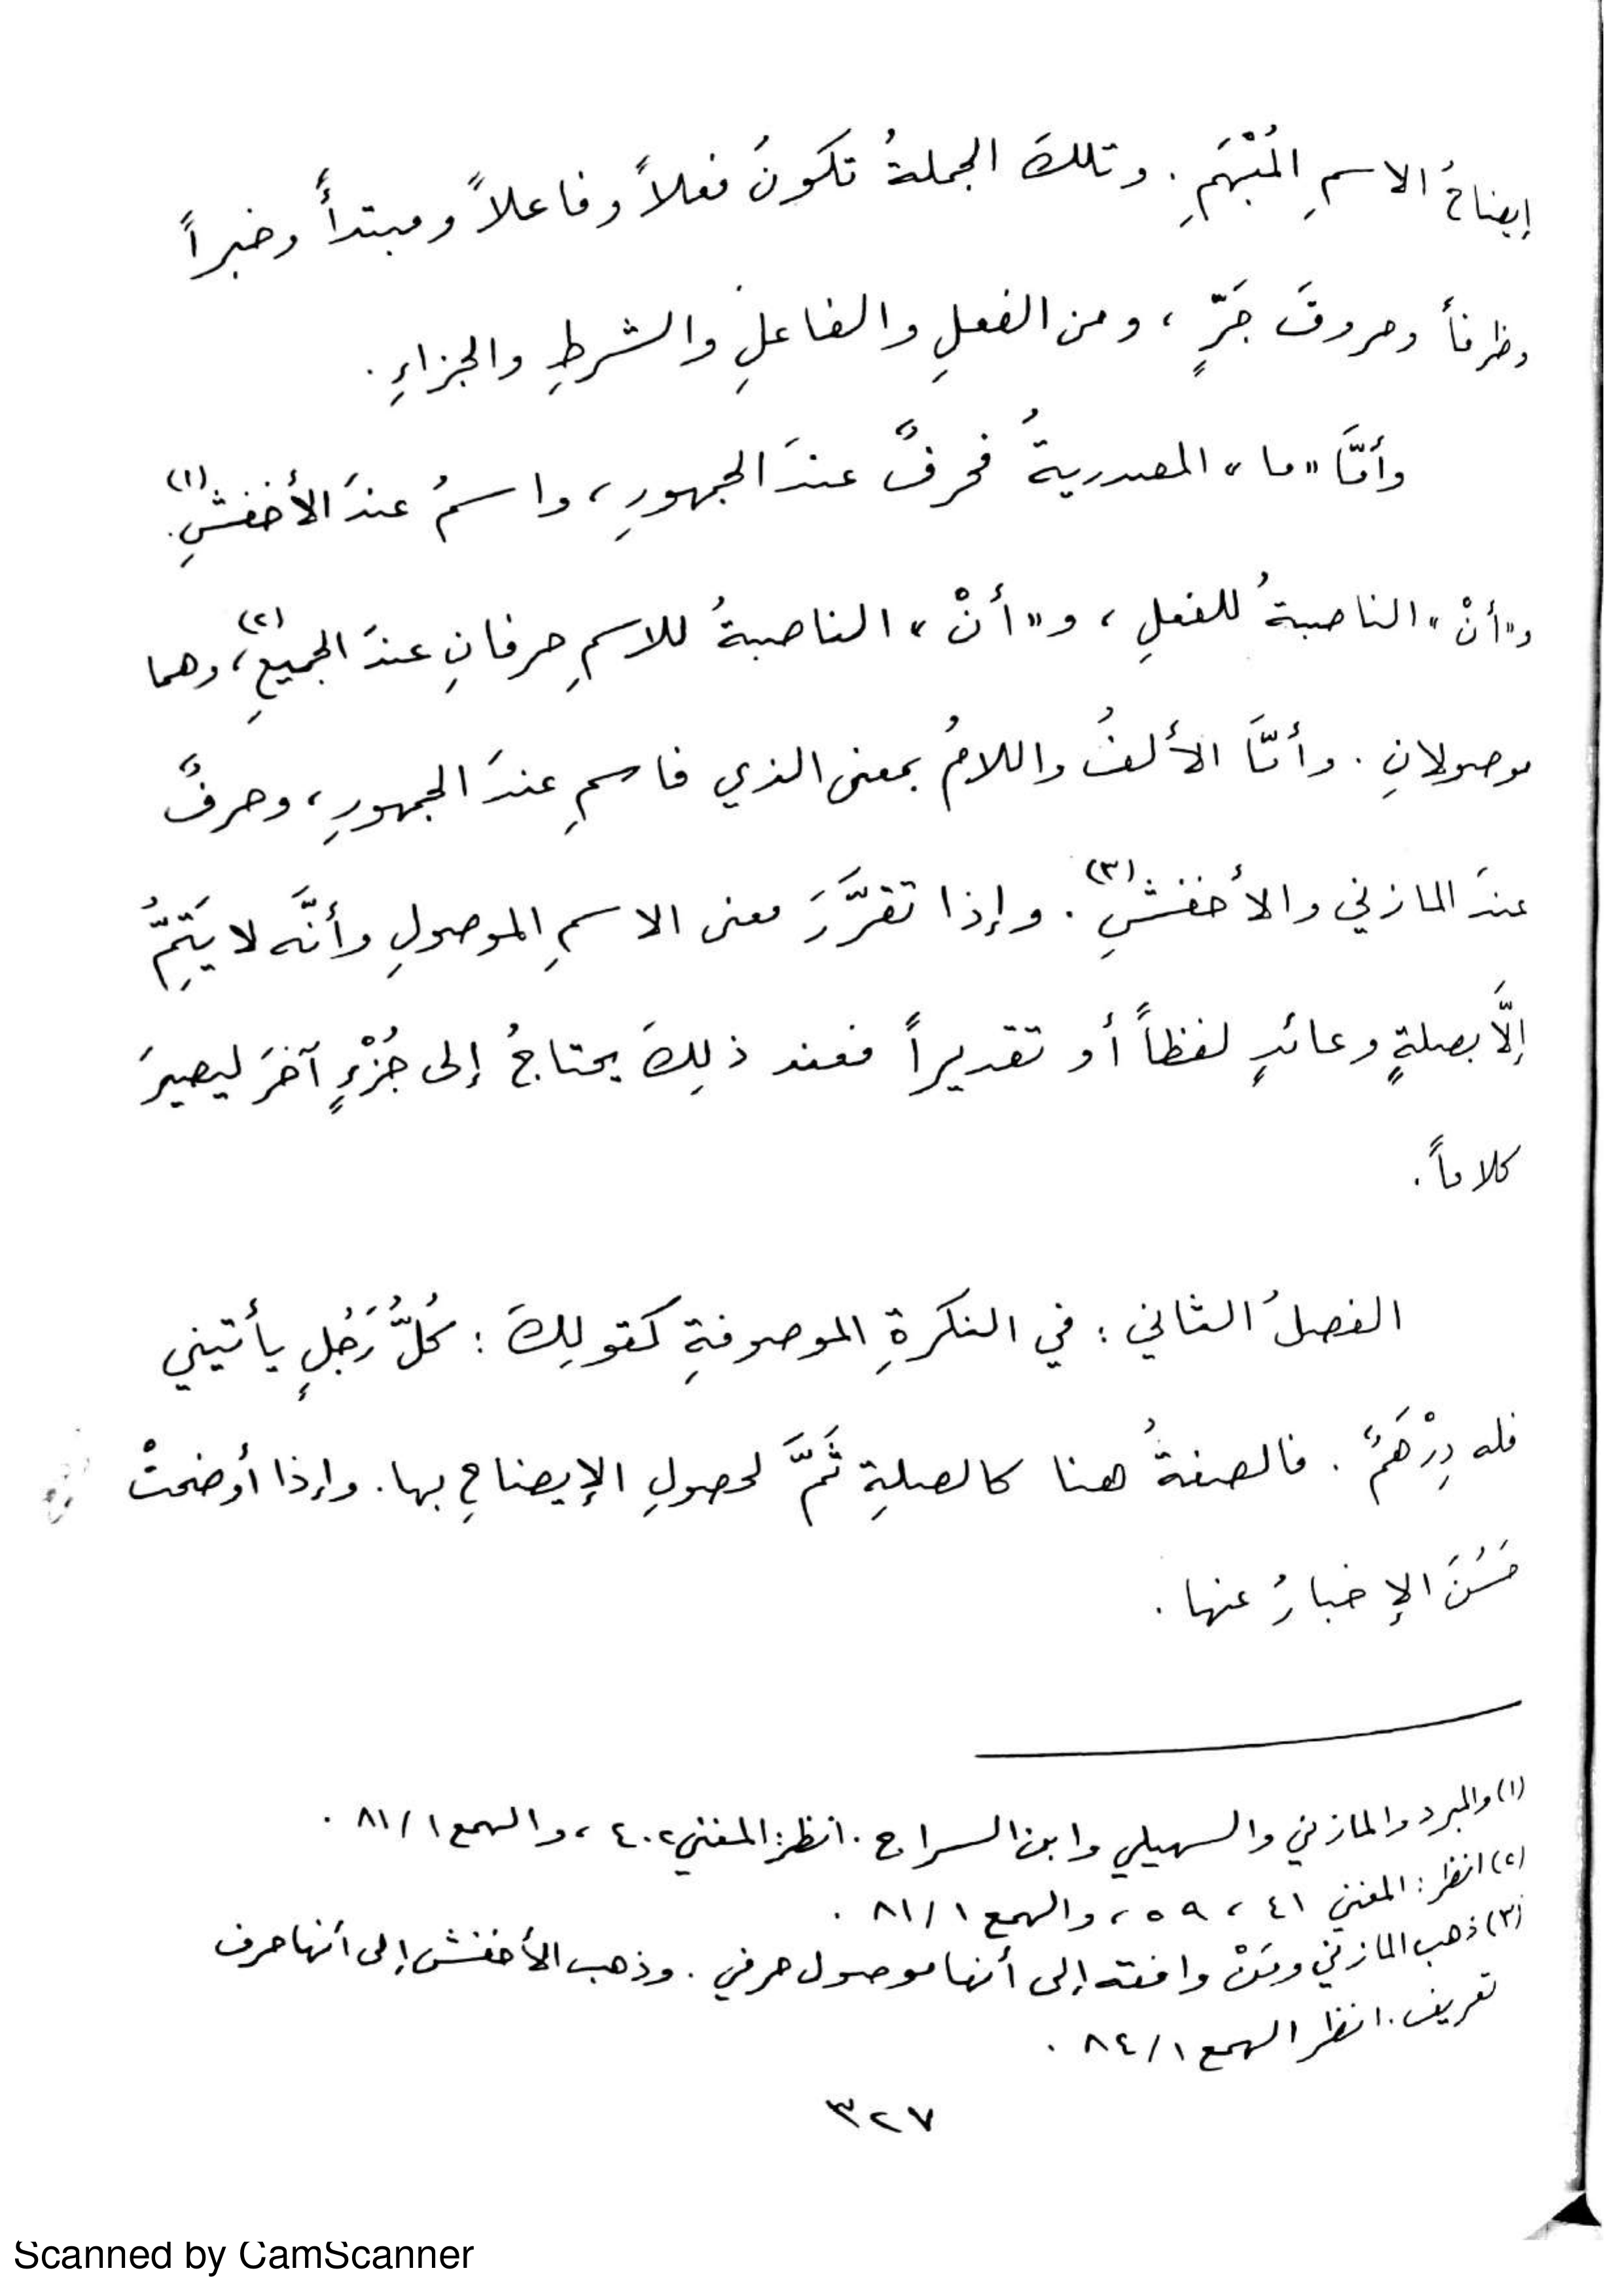 إيضاحُ الاسمِ المُبْهَمِ . وتلكَ الجملةُ تكونُ فعلاً وفاعلاً ومبتدأً وخبراً
وظرفاً وحروفَ جَرٍّ ، ومن الفعلِ والفاعلِ والشرطِ والجزاءِ .
وأمَّا "ما" المصدريةُ فحرفٌ عندَ الجمهورِ ، واسمٌ عندَ الأخفشِ (١) .
و"أنْ" الناصبةُ للفعلِ ، و"أنْ" الناصبةُ للاسمِ حرفانِ عندَ الجميعِ (٢) ، وهما
موصولانِ . وأمَّا الألفُ واللامُ بمعنى الذي فاسمِ عندَ الجمهورِ ، وحرفٌ
عندَ المازني والأخفشِ (٣) . وإذا تقرَّرَ معنى الاسمِ الموصولِ وأنَّه لا يَتِمُّ
إلَّا بصلةٍ وعائدٍ لفظاً أو تقديراً فعند ذلِكَ يحتاجُ إلى جُزْءٍ آخرَ ليصيرَ
كلاماً .
الفصلُ الثاني : في النكرةِ الموصوفةِ كقولِكَ : كُلُّ رَجُلٍ يأتيني
فله دِرْهَمٌ . فالصفةُ هنا كالصلةِ ثَمَّ لحصولِ الإيضاحِ بها . وإذا أوضحتْ
حَسُنَ الإخبارُ عنها .
(١) والمبرد والمازني والسهيلي وابن السراج . انظر : المغني ٤٠٢ ، والهمع ٨١/١ .
(٢) انظر : المغني ٤١ ، ٥٩ ، والهمع ٨١/١ .
(٣) ذهب المازني ومَنْ وافقه إلى أنها موصول حرفي . وذهب الأخفش إلى أنها حرف
تعريف . انظر الهمع ٨٤/١ .
٣٢٧
Scanned by CamScanner